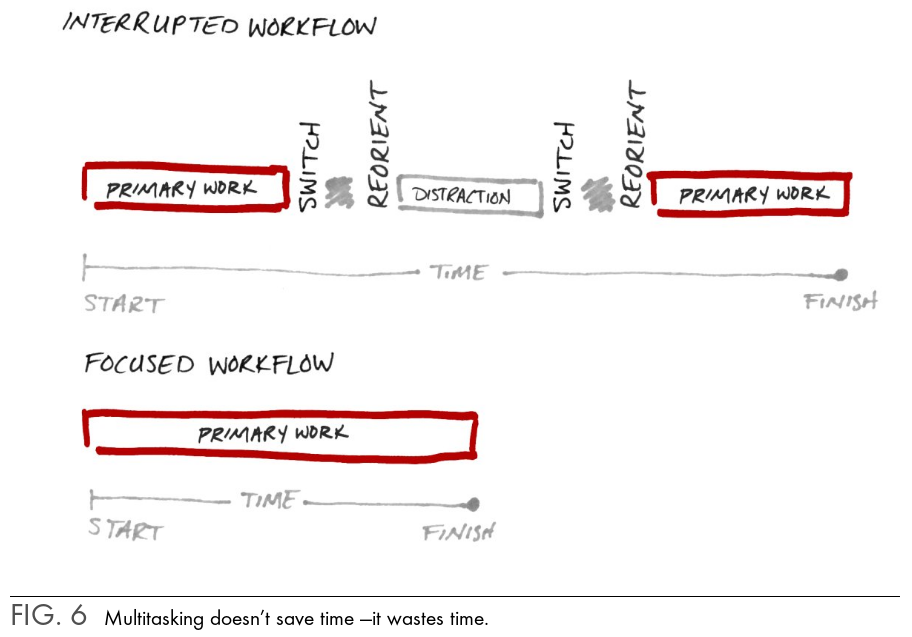 INTERRUPTED WORKFLOW
PRIMARY WORK
SWITCH
REORIENT
DISTRACTION
SWITCH
REORIENT
PRIMARY WORK
TIME
START
FINISH
FOCUSED WORKFLOW
PRIMARY WORK
TIME
START
FINISH
FIG. 6 Multitasking doesn't save time —it wastes time.